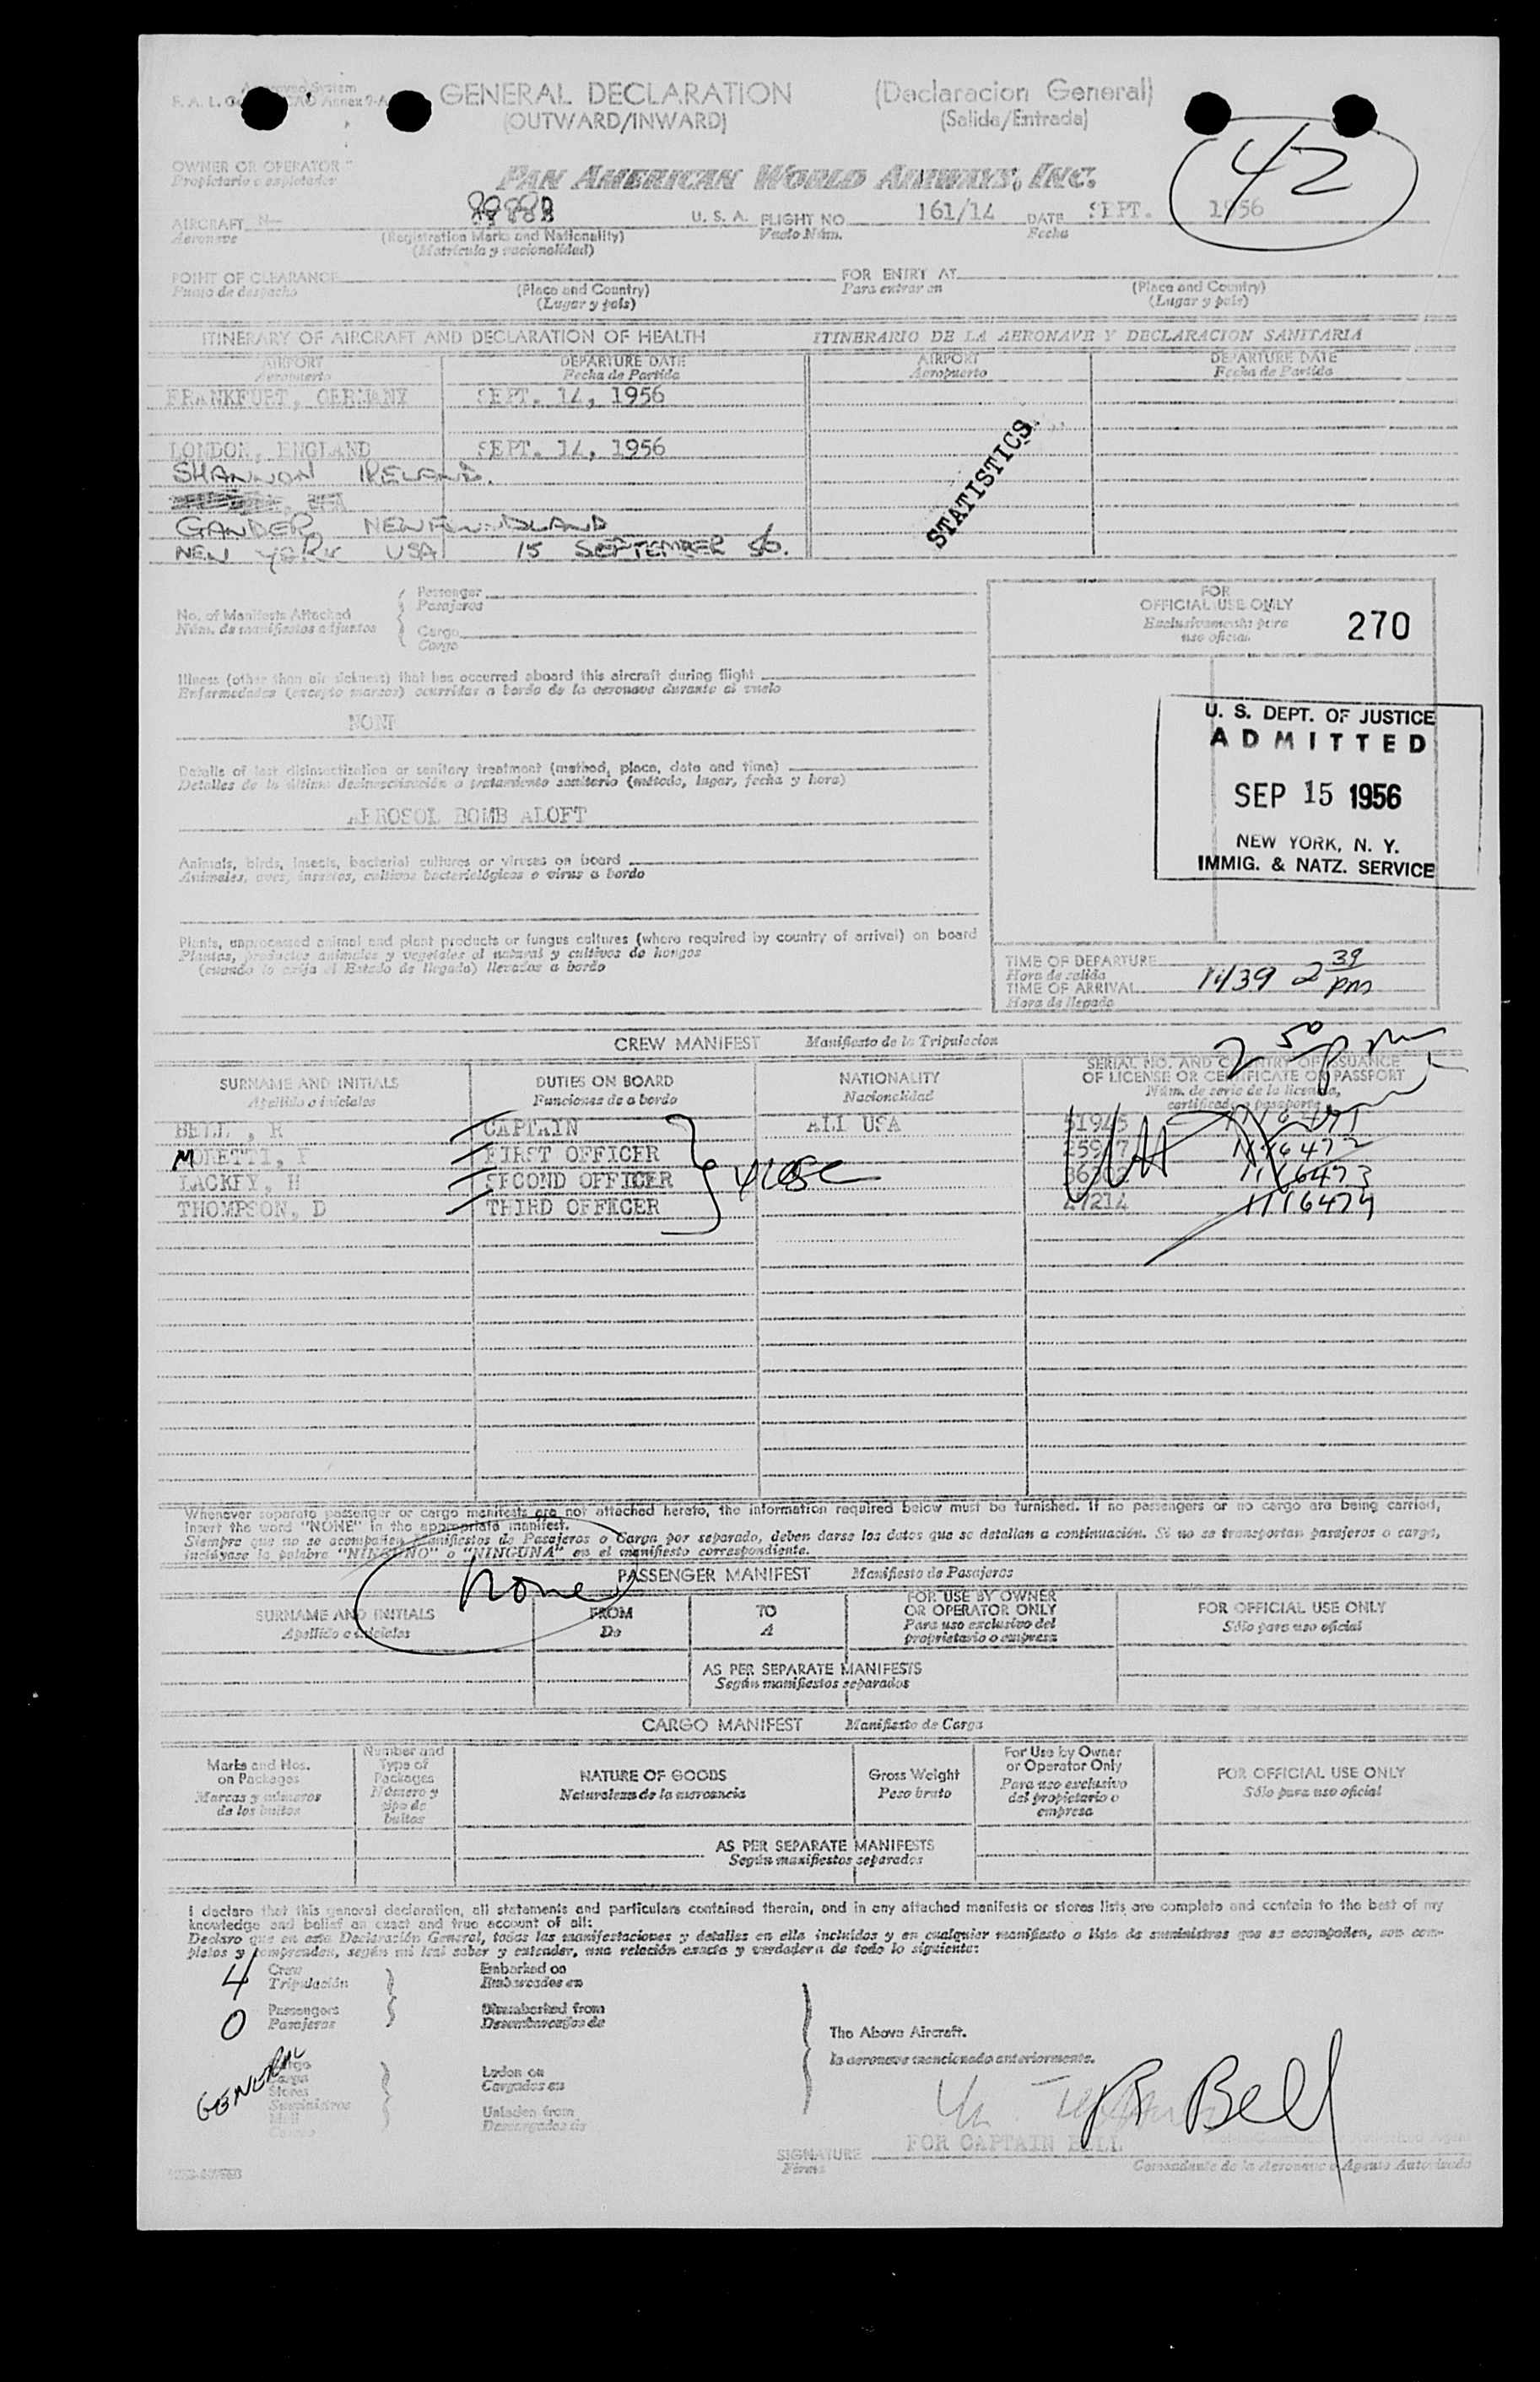 GENERAL DECLARATION (Declaracion General)
(OUTWARD/INWARD) (Salida/Entrada)
42
OWNER OR OPERATOR
Propietario o explotador
PAN AMERICAN WORLD AIRWAYS, INC.
AIRCRAFT N— U. S. A. FLIGHT NO. 161/14 DATE SEPT. 1956
Aeronave (Registration Marks and Nationality) Vuelo Núm. Fecha
(Matrícula y nacionalidad)
POINT OF CLEARANCE FOR ENTRY AT
Punto de despacho (Place and Country) Para entrar en (Place and Country)
(Lugar y país) (Lugar y país)
ITINERARY OF AIRCRAFT AND DECLARATION OF HEALTH ITINERARIO DE LA AERONAVE Y DECLARACION SANITARIA
AIRPORT DEPARTURE DATE AIRPORT DEPARTURE DATE
Aeropuerto Fecha de Partida Aeropuerto Fecha de Partida
FRANKFURT, GERMANY SEPT. 14, 1956
LONDON, ENGLAND SEPT. 14, 1956
SHANNON IRELAND.
GANDER NEWFOUNDLAND
NEW YORK USA 15 SEPTEMBER 56.
STATISTICS
No. of Manifests Attached
Núm. de manifiestos adjuntos
Passenger
Pasajeros
Cargo
Carga
FOR
OFFICIAL USE ONLY
Exclusivamente para
uso oficial
270
Illness (other than air sickness) that has occurred aboard this aircraft during flight
Enfermedades (excepto mareos) ocurridas a bordo de la aeronave durante el vuelo
NONE
Details of last disinsectization or sanitary treatment (method, place, date and time)
Detalles de la última desinsectización o tratamiento sanitario (método, lugar, fecha y hora)
AEROSOL BOMB ALOFT
U. S. DEPT. OF JUSTICE
ADMITTED
SEP 15 1956
NEW YORK, N. Y.
IMMIG. & NATZ. SERVICE
Animals, birds, insects, bacterial cultures or viruses on board
Animales, aves, insectos, cultivos bacteriológicos o virus a bordo
Plants, unprocessed animal and plant products or fungus cultures (where required by country of arrival) on board
Plantas, productos animales y vegetales al natural y cultivos de hongos
(cuando lo exija el Estado de llegada) llevados a bordo
TIME OF DEPARTURE
Hora de salida
TIME OF ARRIVAL 1439 2 39 pm
Hora de llegada
2 50 pm
CREW MANIFEST Manifiesto de la Tripulacion
SURNAME AND INITIALS DUTIES ON BOARD NATIONALITY SERIAL NO. AND COUNTRY OF ISSUANCE
Apellido e iniciales Funciones de a bordo Nacionalidad OF LICENSE OR CERTIFICATE OR PASSPORT
Núm. de serie de la licencia,
certificado o pasaporte
BELL, R CAPTAIN ALL USA 51945
MORETTI, F FIRST OFFICER 1116472
LACKEY, H SECOND OFFICER 1116473
THOMPSON, D THIRD OFFICER 47214 1116474
4 USC
Whenever separate passenger or cargo manifests are not attached hereto, the information required below must be furnished. If no passengers or no cargo are being carried,
insert the word "NONE" in the appropriate manifest.
Siempre que no se acompañen Manifiestos de Pasajeros o Carga por separado, deben darse los datos que se detallan a continuación. Si no se transportan pasajeros o carga,
inclúyase la palabra "NINGUNO" o "NINGUNA" en el manifiesto correspondiente.
PASSENGER MANIFEST Manifiesto de Pasajeros
none
SURNAME AND INITIALS FROM TO FOR USE BY OWNER FOR OFFICIAL USE ONLY
Apellido e iniciales De A OR OPERATOR ONLY Sólo para uso oficial
Para uso exclusivo del
propietario o empresa
AS PER SEPARATE MANIFESTS
Según manifiestos separados
CARGO MANIFEST Manifiesto de Carga
Marks and Nos.
on Packages
Marcas y números
de los bultos
Number and
Type of
Packages
Número y
tipo de
bultos
NATURE OF GOODS
Naturaleza de la mercancía
Gross Weight
Peso bruto
For Use by Owner
or Operator Only
Para uso exclusivo
del propietario o
empresa
FOR OFFICIAL USE ONLY
Sólo para uso oficial
AS PER SEPARATE MANIFESTS
Según manifiestos separados
I declare that this general declaration, all statements and particulars contained therein, and in any attached manifests or stores lists are complete and contain to the best of my
knowledge and belief an exact and true account of all:
Declaro que en esta Declaración General, todas las manifestaciones y detalles en ella incluidos y en cualquier manifiesto o lista de suministros que se acompañen, son com-
pletos y comprenden, según mi leal saber y entender, una relación exacta y verdadera de todo lo siguiente:
4 Crew Embarked on
Tripulación Embarcados en
0 Passengers Disembarked from
Pasajeros Desembarcados de
The Above Aircraft.
la aeronave mencionada anteriormente.
GENERAL
Cargo
Carga
Stores
Suministros
Mail
Correo
Laden on
Cargados en
Unladen from
Descargados de
R Bell
SIGNATURE FOR CAPTAIN BELL
Firma Comandante de la Aeronave o Agente Autorizado